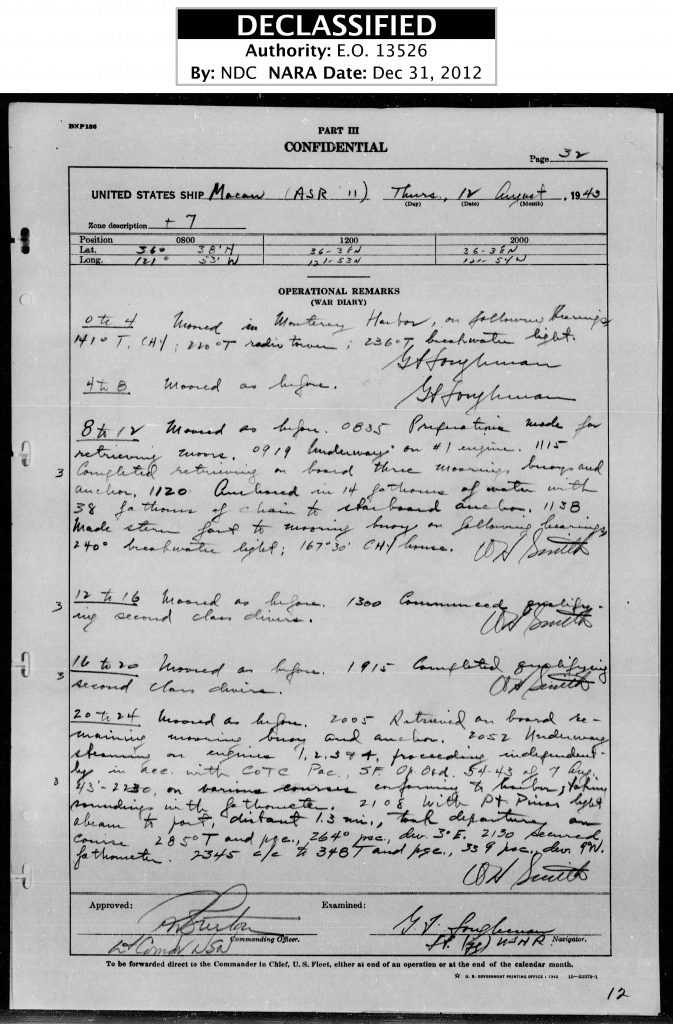 DECLASSIFIED
Authority: E.O. 13526
By: NDC NARA Date: Dec 31, 2012
BNP186
PART III
CONFIDENTIAL
Page 32
UNITED STATES SHIP Macaw (ASR 11) Thurs., 12 August, 1943
(Day) (Date) (Month)
Zone description + 7
Position 0800 1200 2000
Lat. 36° 38' N 36-38N 36-38N
Long. 121° 53' W 121-53W 121-54W
OPERATIONAL REMARKS
(WAR DIARY)
0 to 4 Moored in Monterey Harbor, on following bearings
141° T. CHY; 220°T radio tower; 236°T breakwater light.
4 to 8 Moored as before.
8 to 12 Moored as before. 0835 Preparations made for
retrieving moor. 0919 Underway on #1 engine. 1115
3 Completed retrieving on board three mooring buoys and
anchor. 1120 Anchored in 14 fathoms of water with
38 fathoms of chain to starboard anchor. 1138
Made stern fast to mooring buoy on following bearings
240° breakwater light; 167°30' CHY house. Smith
3 12 to 16 Moored as before. 1300 Commenced qualify-
ing second class divers. Smith
3 16 to 20 Moored as before. 1915 Completed qualifying
second class divers. Smith
20 to 24 Moored as before. 2005 Retrieved on board re-
maining mooring buoy and anchor. 2052 Underway
steaming on engines 1, 2, 3 & 4, proceeding independent-
ly in acc. with COTC Pac., SF. Op. Ord. 54-43 of 7 Aug.
3 43-2230, on various courses conforming to harbor, taking
soundings with fathometer. 2108 With Pt Pinos light
abeam to port, distant 1.3 mi., took departure on
course 285°T and pgc., 264° psc., dev. 3°E. 2130 secured
fathometer. 2345 c/c to 348T and pgc., 339 psc., dev. 9°W.
Smith
Approved: Examined:
Burton
Lt Comdr USN Commanding Officer. Lt. (jg) USNR Navigator.
To be forwarded direct to the Commander in Chief, U. S. Fleet, either at end of an operation or at the end of the calendar month.
☆ U. S. GOVERNMENT PRINTING OFFICE : 1942
12